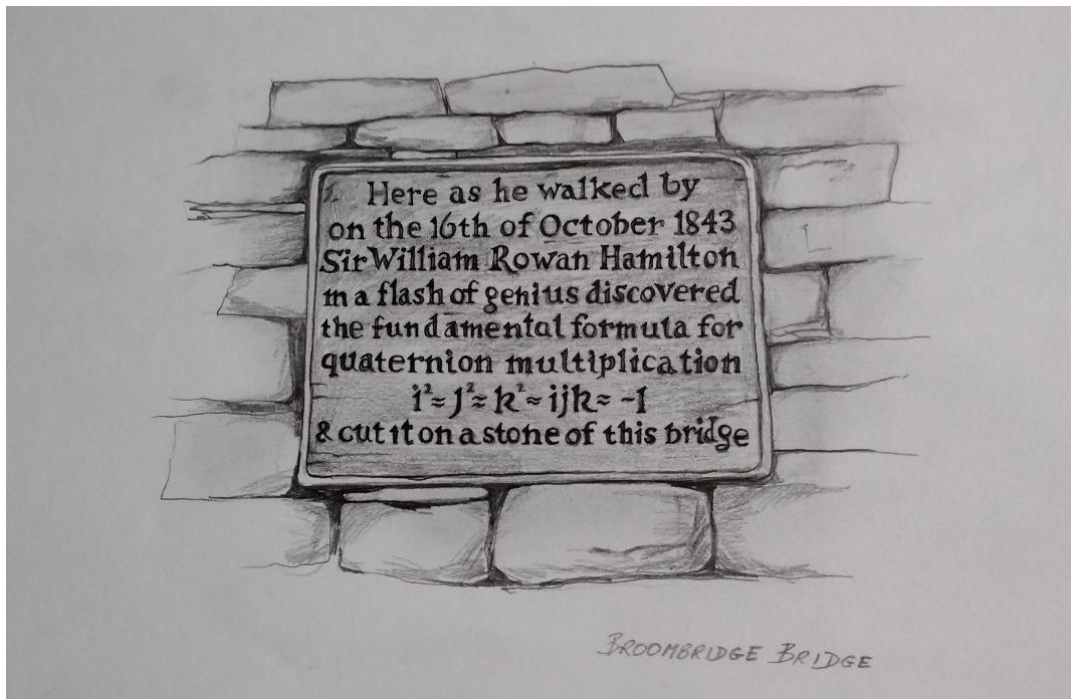 Here as he walked by
on the 16th of October 1843
Sir William Rowan Hamilton
in a flash of genius discovered
the fundamental formula for
quaternion multiplication
i²≈j²≈k²≈ijk≈-1
& cut it on a stone of this bridge
BROOMBRIDGE BRIDGE